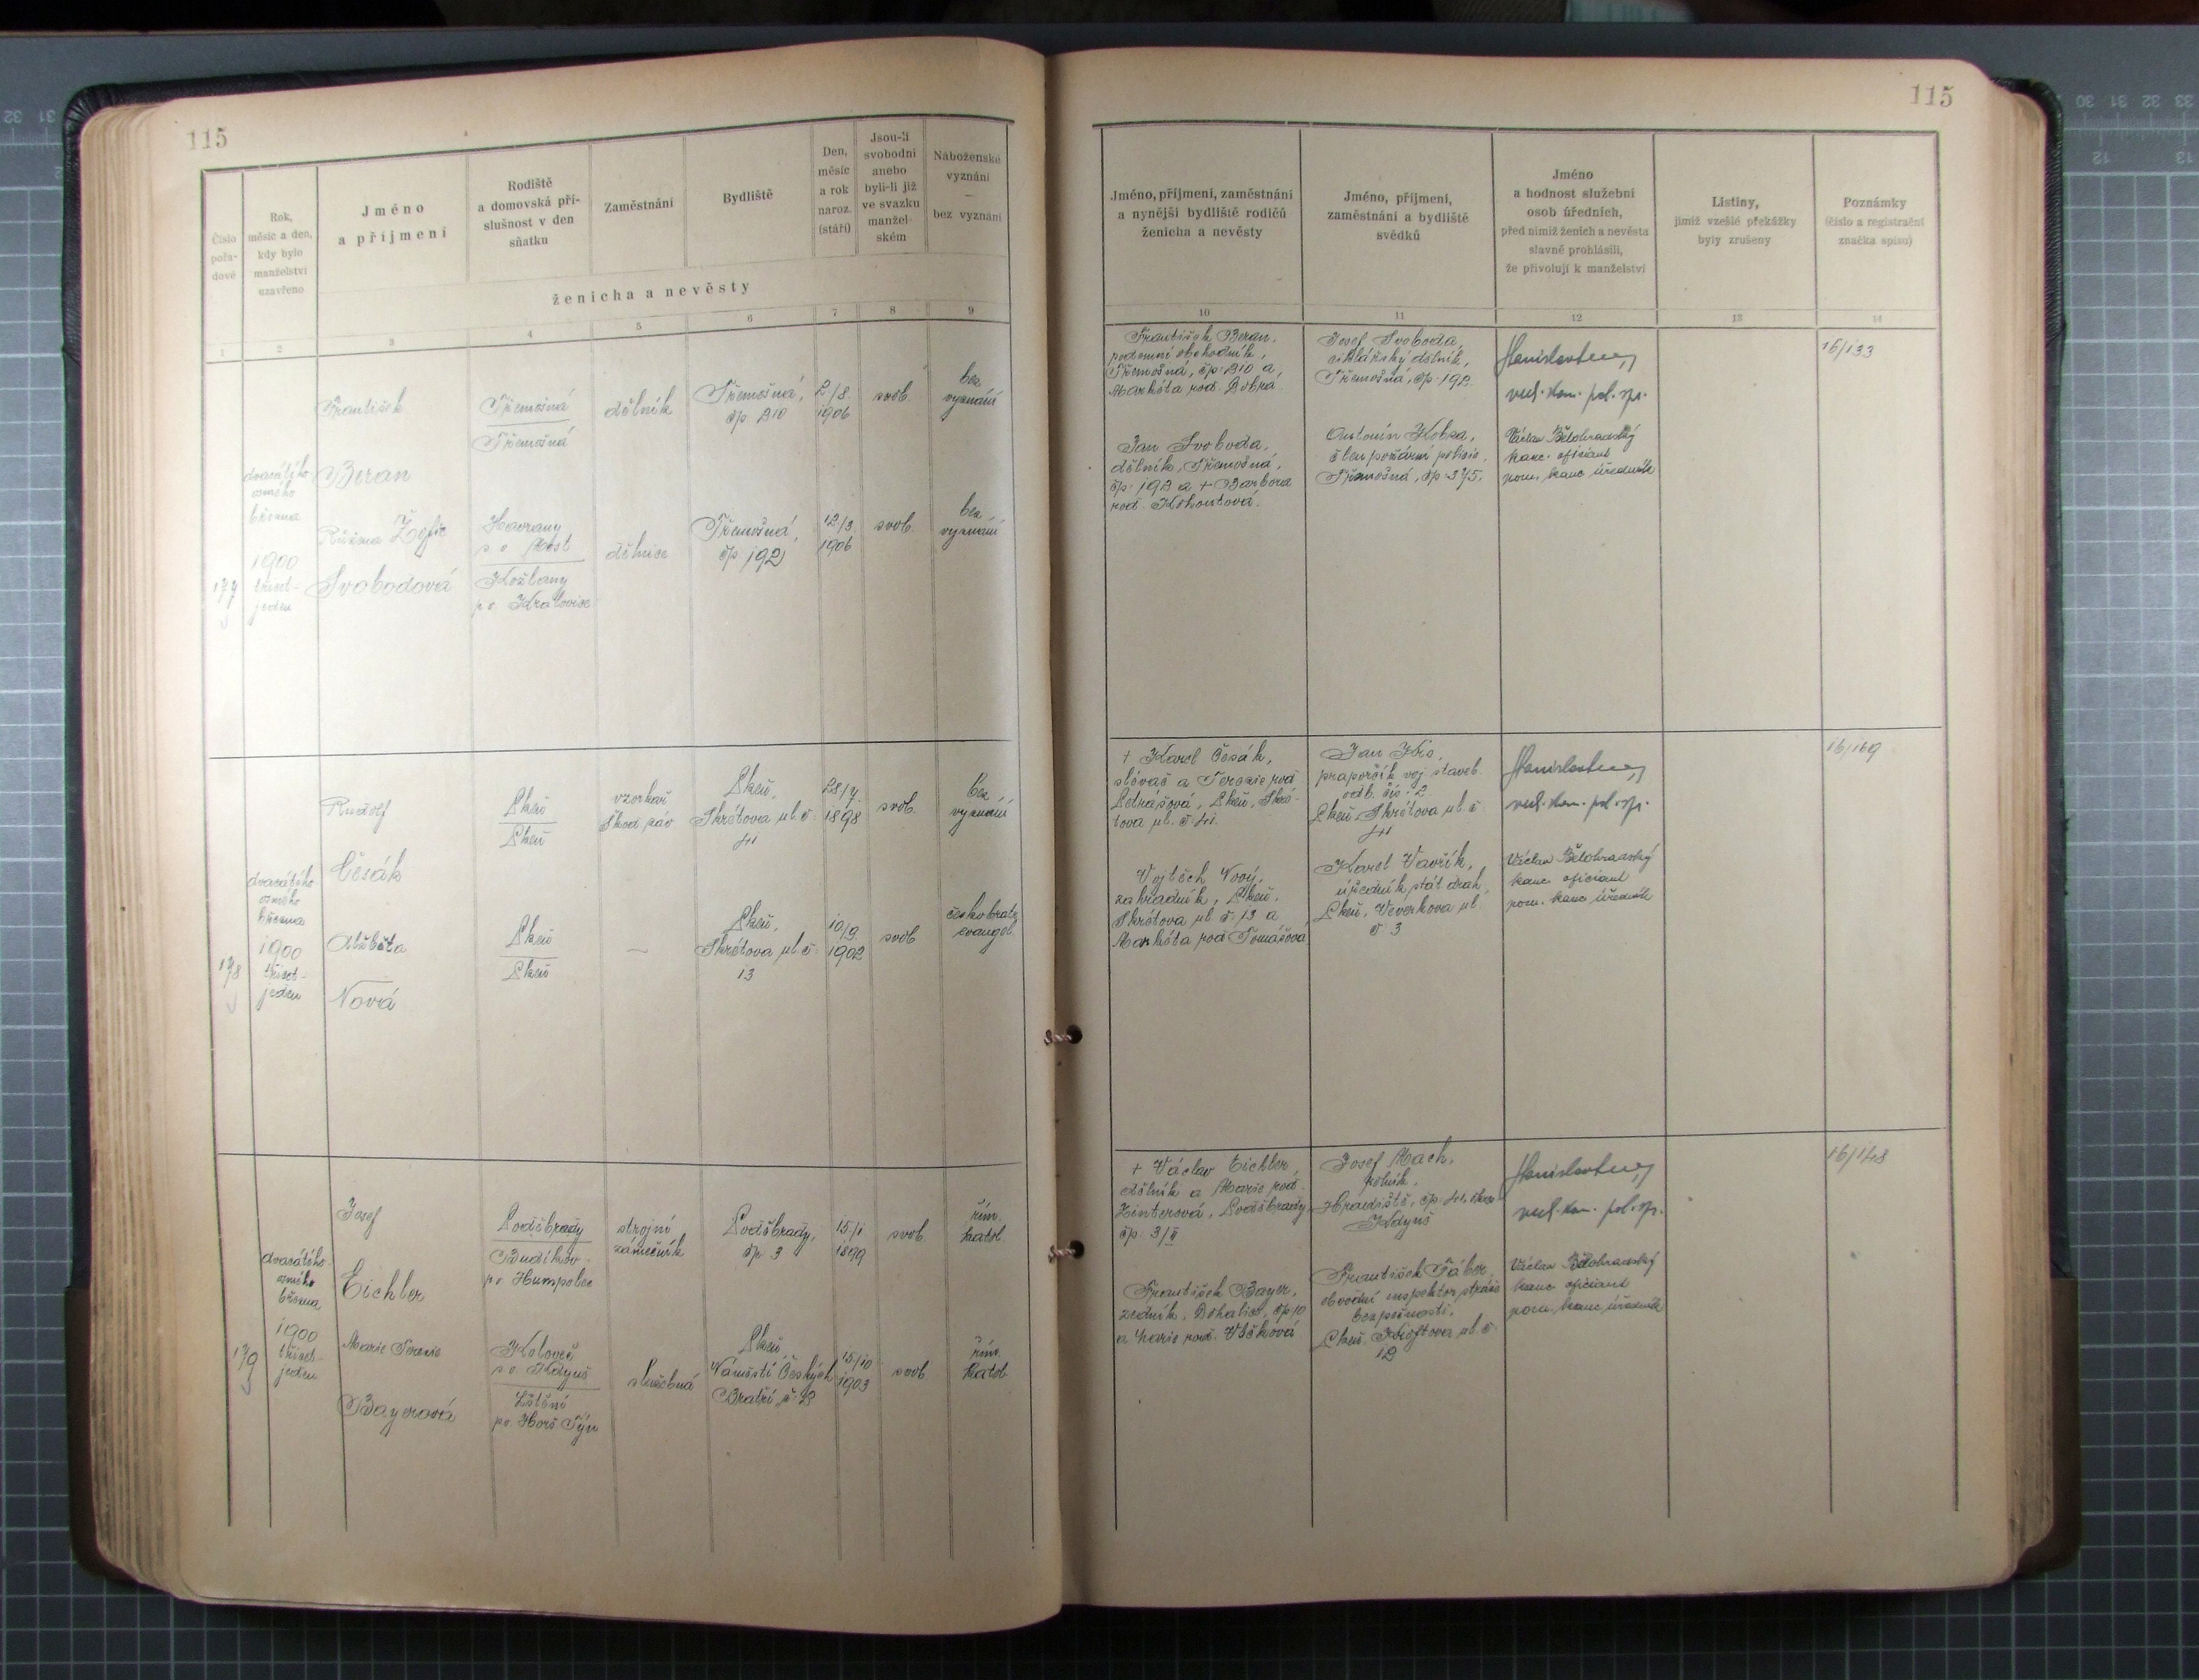 115
Číslo
pořa-
dové
Rok,
měsíc a den,
kdy bylo
manželství
uzavřeno
Jméno
a příjmení
Rodiště
a domovská pří-
slušnost v den
sňatku
Zaměstnání
Bydliště
Den,
měsíc
a rok
naroz.
(stáří)
Jsou-li
svobodni
anebo
byli-li již
ve svazku
manžel-
ském
Náboženské
vyznání
—
bez vyznání
ženicha a nevěsty
1 2 3 4 5 6 7 8 9
177
dvacátého
osmého
března
1900
třicet-
jeden
František
Beran
Třemošná
Třemošná
dělník
Třemošná,
čp 210
2/8.
1906
svob.
bez
vyznání
Růžena Žofie
Svobodová
Havrany
p. o. Most
Kožlany
p. o. Kralovice
dělnice
Třemošná,
čp 192
12/3.
1906
svob.
bez
vyznání
178
dvacátého
osmého
března
1900
třicet-
jeden
Rudolf
Česák
Plzeň
Plzeň
vzorkař
Škod. záv
Plzeň,
Skrétova ul. č.
41
28/7.
1898
svob.
bez
vyznání
Alžběta
Nová
Plzeň
Plzeň
—
Plzeň,
Skrétova ul. č.
13
10/9.
1902
svob
českobratr.
evangel.
179
dvacátého
osmého
března
1900
třicet-
jeden
Josef
Eichler
Poděbrady
Budíkov
p. o. Humpolec
strojní
zámečník
Poděbrady,
čp. 3
15/1
1899
svob.
řím.
katol.
Marie Terezie
Bayerová
Koloveč
p. o. Kdyně
p. o. Horš. Týn
služebná
Plzeň,
Náměstí Českých
Bratří, č. 2
15/10
1903
svob.
řím.
katol.
115
Jméno, příjmení, zaměstnání
a nynější bydliště rodičů
ženicha a nevěsty
Jméno, příjmení,
zaměstnání a bydliště
svědků
Jméno
a hodnost služební
osob úředních,
před nimiž ženich a nevěsta
slavně prohlásili,
že přivolují k manželství
Listiny,
jimiž vzešlé překážky
byly zrušeny
Poznámky
(číslo a registrační
značka spisu)
10 11 12 13 14
František Beran,
podomní obchodník,
Třemošná, čp. 210 a
Markéta roz. Dobrá.
Josef Svoboda,
cihlářský dělník,
Třemošná, čp. 192.
vrch. kom. pol. sp.
16/133
Jan Svoboda,
dělník, Třemošná,
čp. 192 a + Barbora
roz. Kohoutová.
Antonín Kobza,
člen požární policie,
Třemošná, čp. 375.
Václav Bělohradský
kanc. oficiant
pom. kanc. úředník
+ Karel Česák,
slévač a Terezie roz.
Petrášová, Plzeň, Skré-
tova ul. č. 41.
praporčík voj. staveb.
odb. čís. 2
Plzeň, Skrétova ul. č.
41
vrch. kom. pol. sp.
16/169
Vojtěch Nový,
zahradník, Plzeň,
Skrétova ul. č. 13 a
Markéta roz. Tomášová
Karel Vavřík,
úředník stát. drah,
Plzeň, Veverkova ul.
č. 3
Václav Bělohradský
kanc. oficiant
pom. kanc. úředník
+ Václav Eichler,
dělník a Marie roz.
Zinterová, Poděbrady
čp. 3/II
Josef Mach,
rolník,
Hradiště, čp. 41,
Kdyně
vrch. kom. pol. sp.
16/148
František Bayer,
zedník, čp. 10
a Marie roz. Vlčková
František Fáber,
obvodní inspektor stráže
bezpečnosti,
Plzeň, Koftova ul. č.
12
Václav Bělohradský
kanc. oficiant
pom. kanc. úředník